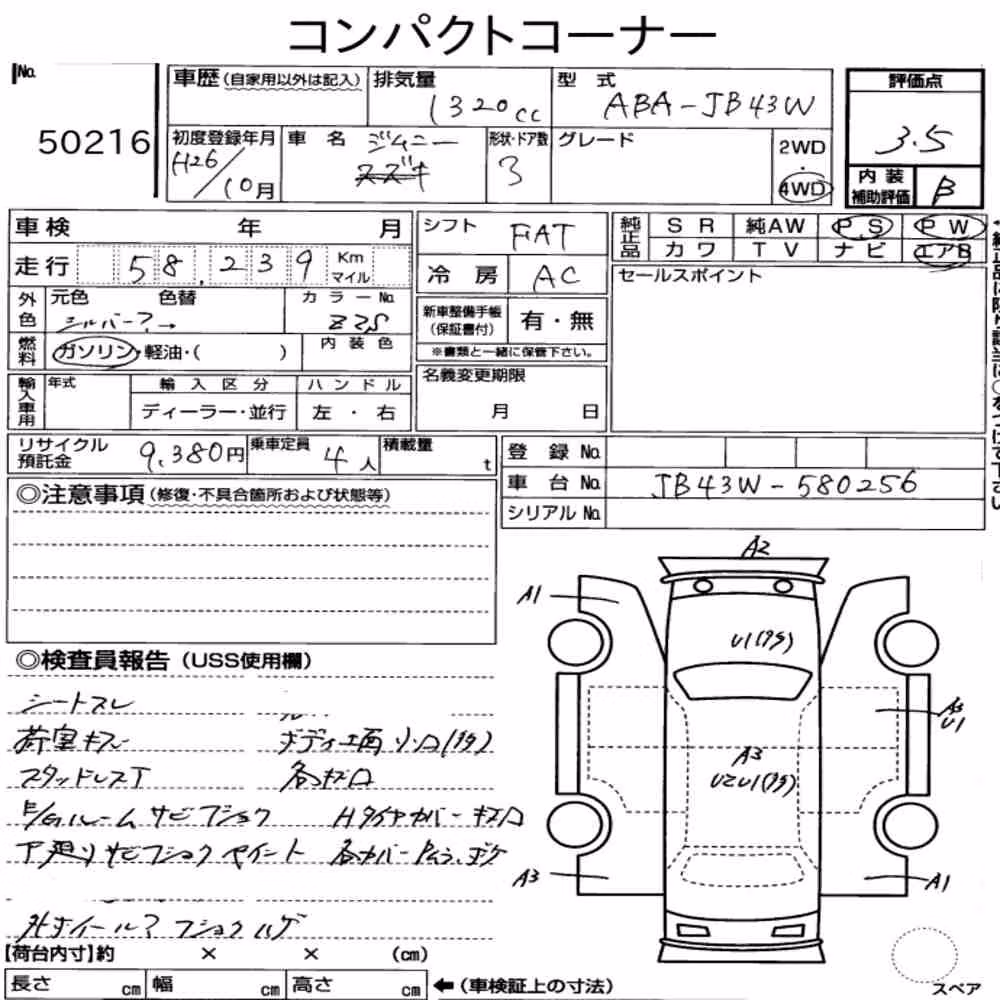 コンパクトコーナー
No. 50216
車歴 (自家用以外は記入) 排気量 1320cc 型式 ABA-JB43W 評価点 3.5
初度登録年月 H26/10月 車名 ジムニー スズキ 形状・ドア数 3 グレード 2WD・4WD 内装補助評価 B
車検 年 月 シフト FAT 純正品 SR 純AW PS PW
カワ TV ナビ エアB
走行 58,239 Km マイル 冷房 AC セールスポイント
外色 元色 シルバー? → 色替 カラーNo. Z2S 新車整備手帳 (保証書付) 有・無
燃料 ガソリン・軽油・( ) 内装色 ※書類と一緒に保管下さい。
輸入車用 年式 輸入区分 ハンドル 名義変更期限
ディーラー・並行 左・右 月 日
リサイクル預託金 9,380円 乗車定員 4人 積載量 t 登録No.
車台No. JB43W-580256
シリアルNo.
◎注意事項 (修復・不具合箇所および状態等)
A2
A1
U1(タタ)
A1
U1
A3
U2U1(タタ)
A3 A1
◎検査員報告 (USS使用欄)
シートスレ
荷室キズ ボディ上面
スタッドレスT 各キズ
E/Gルーム サビフショク Hタイヤカバー
下廻りサビフショクペイント 各カバー
ホイール フショク ハゲ
【荷台内寸】約 × × (cm)
長さ cm 幅 cm 高さ cm ←(車検証上の寸法)
スペア